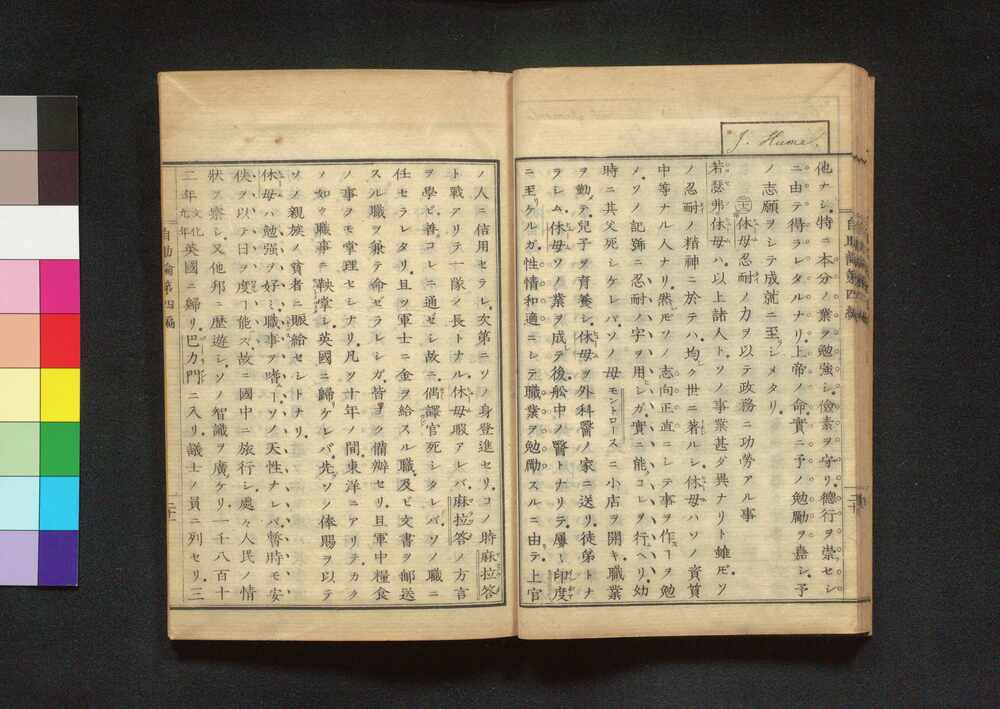 J. Hume.
他ナシ特ニ本分ノ業ヲ勉強シ儉素ヲ守リ德行ヲ崇セシ
ニ由テ得ラレタルナリ上帝ノ命實ニ予ノ勉勵ヲ嘉シ予
ノ志願ヲシテ成就ニ至シメタリ
休母忍耐ノ力ヲ以テ政務ニ功勞アル事
若瑟弗休母ハ以上諸人トソノ事業甚ダ異ナリト雖𪜈ソ
ノ忍耐ノ精神ニ於テハ均ク世ニ著ルシ休母ハソノ資質
中等ナル人ナリ然𪜈ソノ志向正直ニシテ事ヲ作ーヲ勉
メソノ記號ニ忍耐ノ字ヲ用シガ實ニ能コレヲ行ヘリ幼
時ニ其父死シケレバソノ母モントロースニ小店ヲ開キ職業
ヲ勤テ兒子ヲ育養シ休母ヲ外科醫ノ家ニ送リ徒弟トナ
ラシム休母ソノ業ヲ成テ後船中ノ醫トナリテ屢〻印度
ニ至ケルガ性情和適ニシテ職業ヲ勉勵スルニ由テ上官
自助論第四編
二十
ノ人ニ信用セラレ次第ニソノ身登進セリコノ時麻拉答
ト戰アリテ一隊ノ長トナル休母暇アレバ麻拉答ノ方言
ヲ學ビ善コレニ通ゼシ故ニ偶譯官死シタレバソノ職ニ
任セラレタリ且ツ軍士ニ金ヲ給スル職及ビ文書ヲ郵送
スル職ヲ兼テ命ゼラレシガ皆ヨク備辦セリ且軍中糧食
ノ事ヲモ掌理セシナリ凡ソ十年ノ間東洋ニアリテカク
ノ如ク職事ニ鞅掌シ英國ニ歸ケレバ先ヅソノ俸賜ヲ以テ
ソノ親族ノ貧者ニ賑給セシトナリ
休母ハ勉强ヲ好ミ職事ヲ嗜ーソノ天性ナレバ暫時モ安
佚ヲ以テ日ヲ度ー能ズ故ニ國中ニ旅行シ處々人民ノ情
狀ヲ察シ又他邦ニ歷遊シソノ智識ヲ廣ケリ一千八百十
二年文化九年英國ニ歸リ巴力門ニ入リ議士ノ員ニ列セリ三
自助論第四編
二十